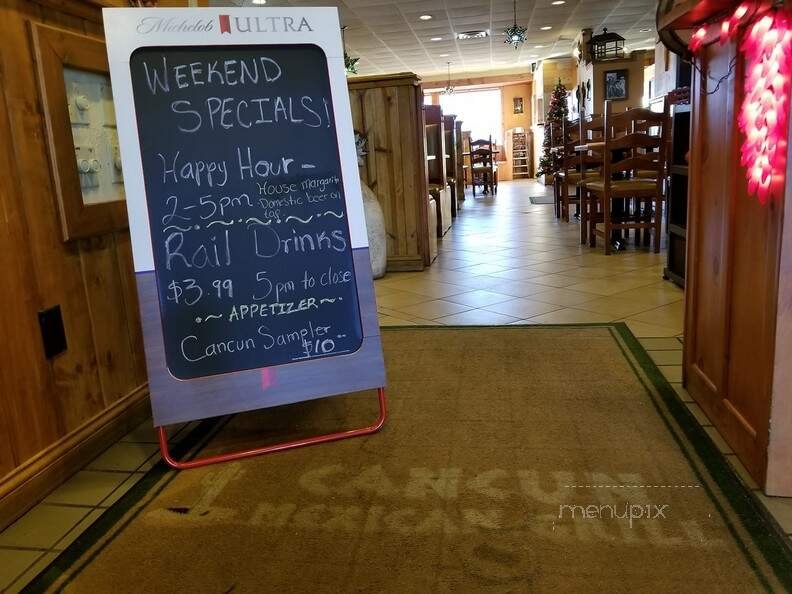 Michelob ULTRA
WEEKEND
SPECIALS!
Happy Hour -
2-5pm House margarita
Domestic beer on
tap
Rail Drinks
$3.99 5pm to close
~ APPETIZER ~
Cancun Sampler
$10
CANCUN
MEXICAN GRILL
menupix